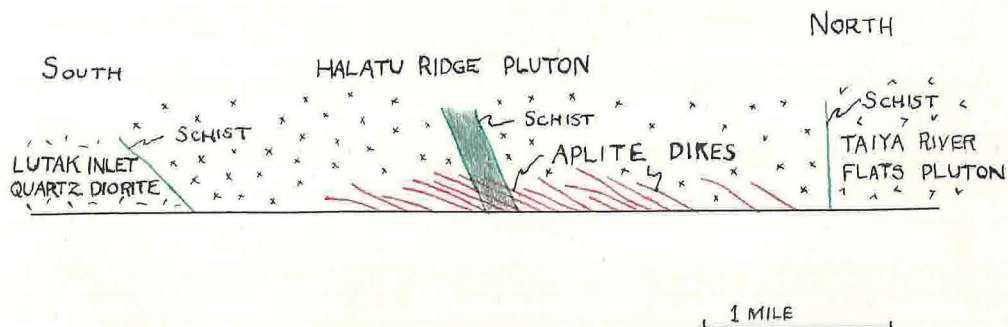 NORTH
SOUTH
HALATU RIDGE PLUTON
SCHIST
SCHIST
SCHIST
LUTAK INLET
QUARTZ DIORITE
APLITE DIKES
TAIYA RIVER
FLATS PLUTON
1 MILE